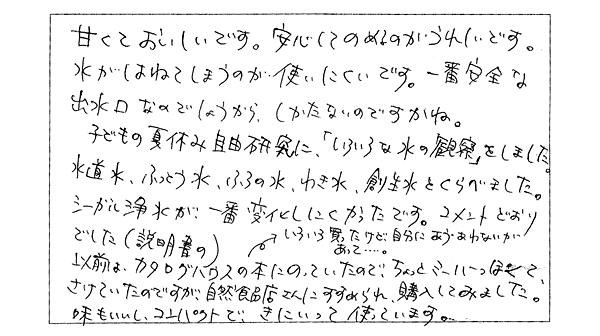 甘くておいしいです。安心してのめるのがうれしいです。
水がはねてしまうのが使いにくいです。一番安全な
出水口なのでしょうから、しかたないのですかね。
子どもの夏休み自由研究に、「いろいろな水の観察」をしました。
水道水、ふっとう水、ふろの水、わき水、創生水とくらべました。
シーガル浄水が、一番変化しにくかったです。コメントどおり
でした(説明書の)
いろいろ買ったけど、自分にあう、あわないが
あって……。
以前は、カタログハウスの本にのっていたので、ちょっとミーハーっぽくて、
さけていたのですが自然食品店さんにすすめられ、購入してみました。
味もいいし、コンパクトで、きにいって使っています。……